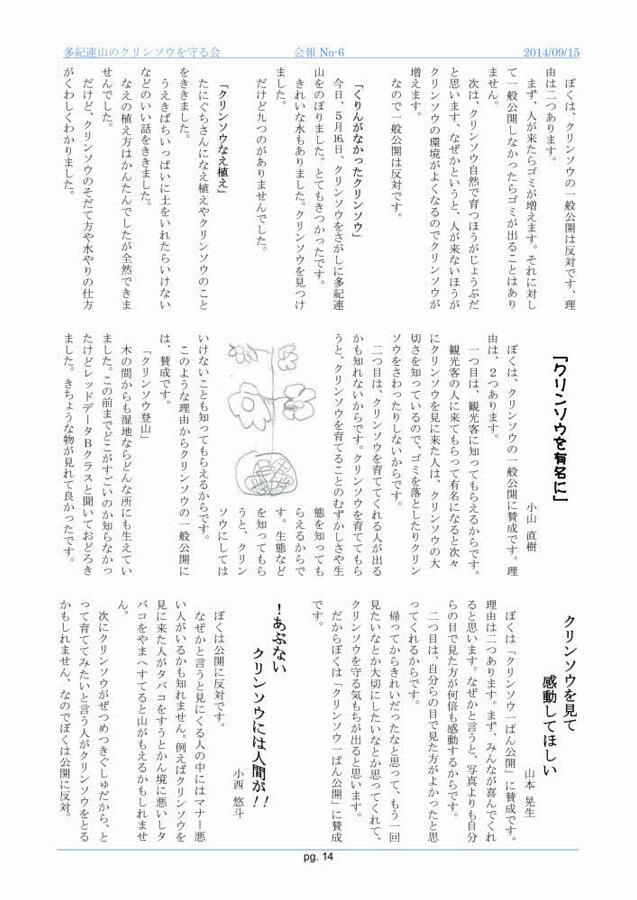 多紀連山のクリンソウを守る会
会報 No-6
2014/09/15
ぼくは、クリンソウの一般公開は反対です、理
由は二つあります。
まず、人が来たらゴミが増えます。それに対し
て一般公開しなかったらゴミが出ることはあり
ません。
次は、クリンソウ自然で育つほうがじょうぶだ
と思います、なぜかというと、人が来ないほうが
クリンソウの環境がよくなるのでクリンソウが
増えます。
なので一般公開は反対です。
「くりんがなかったクリンソウ」
今日、5月16日、クリンソウをさがしに多紀連
山をのぼりました。とてもきつかったです。
きれいな水もありました。クリンソウを見つけ
ました。
だけど九つのがありませんでした。
「クリンソウなえ植え」
たにぐちさんになえ植えやクリンソウのこと
をききました。
うえきばちいっぱいに土をいれたらいけない
などのいい話をききました。
なえの植え方はかんたんでしたが全然できま
せんでした。
だけど、クリンソウのそだて方や水やりの仕方
がくわしくわかりました。
「クリンソウを有名に」
小山 直樹
ぼくは、クリンソウの一般公開に賛成です。理
由は、2つあります。
一つ目は、観光客に知ってもらえるからです。
観光客の人に来てもらって有名になると次々
にクリンソウを見に来た人は、クリンソウの大
切さを知っているので、ゴミを落としたりクリン
ソウをさわったりしないからです。
二つ目は、クリンソウを育ててくれる人が出る
かも知れないからです。クリンソウを育ててもら
うと、クリンソウを育てることのむずかしさや生
態を知っても
らえるからで
す。生態など
を知ってもら
うと、クリン
ソウにしては
いけないことも知ってもらえるからです。
このような理由からクリンソウの一般公開に
は、賛成です。
「クリンソウ登山」
木の間からも湿地ならどんな所にも生えてい
ました。この前までどこがすごいのか知らなかっ
たけどレッドデータBクラスと聞いておどろき
ました。きちょうな物が見れて良かったです。
クリンソウを見て
感動してほしい
山本 晃生
ぼくは「クリンソウ一ぱん公開」に賛成です。
理由は二つあります。まず、みんなが喜んでくれ
ると思います。なぜかと言うと、写真よりも自分
らの目で見た方が何倍も感動するからです。
二つ目は、自分らの目で見た方がよかったと思
ってくれるからです。
帰ってからきれいだったなと思って、もう一回
見たいなとか大切にしたいなとか思ってくれて、
クリンソウを守る気もちが出ると思います。
だからぼくは「クリンソウ一ぱん公開」に賛成
です。
！あぶない
クリンソウには人間が！！
小西 悠斗
ぼくは公開に反対です。
なぜかと言うと見にくる人の中にはマナー悪
い人がいるかも知れません。例えばクリンソウを
見に来た人がタバコをすうとかん境に悪いしタ
バコをやまへすてると山がもえるかもしれませ
ん。
次にクリンソウがぜつめつきぐしゅだから、と
って育ててみたいと言う人がクリンソウをとる
かもしれません、なのでぼくは公開に反対。
pg. 14